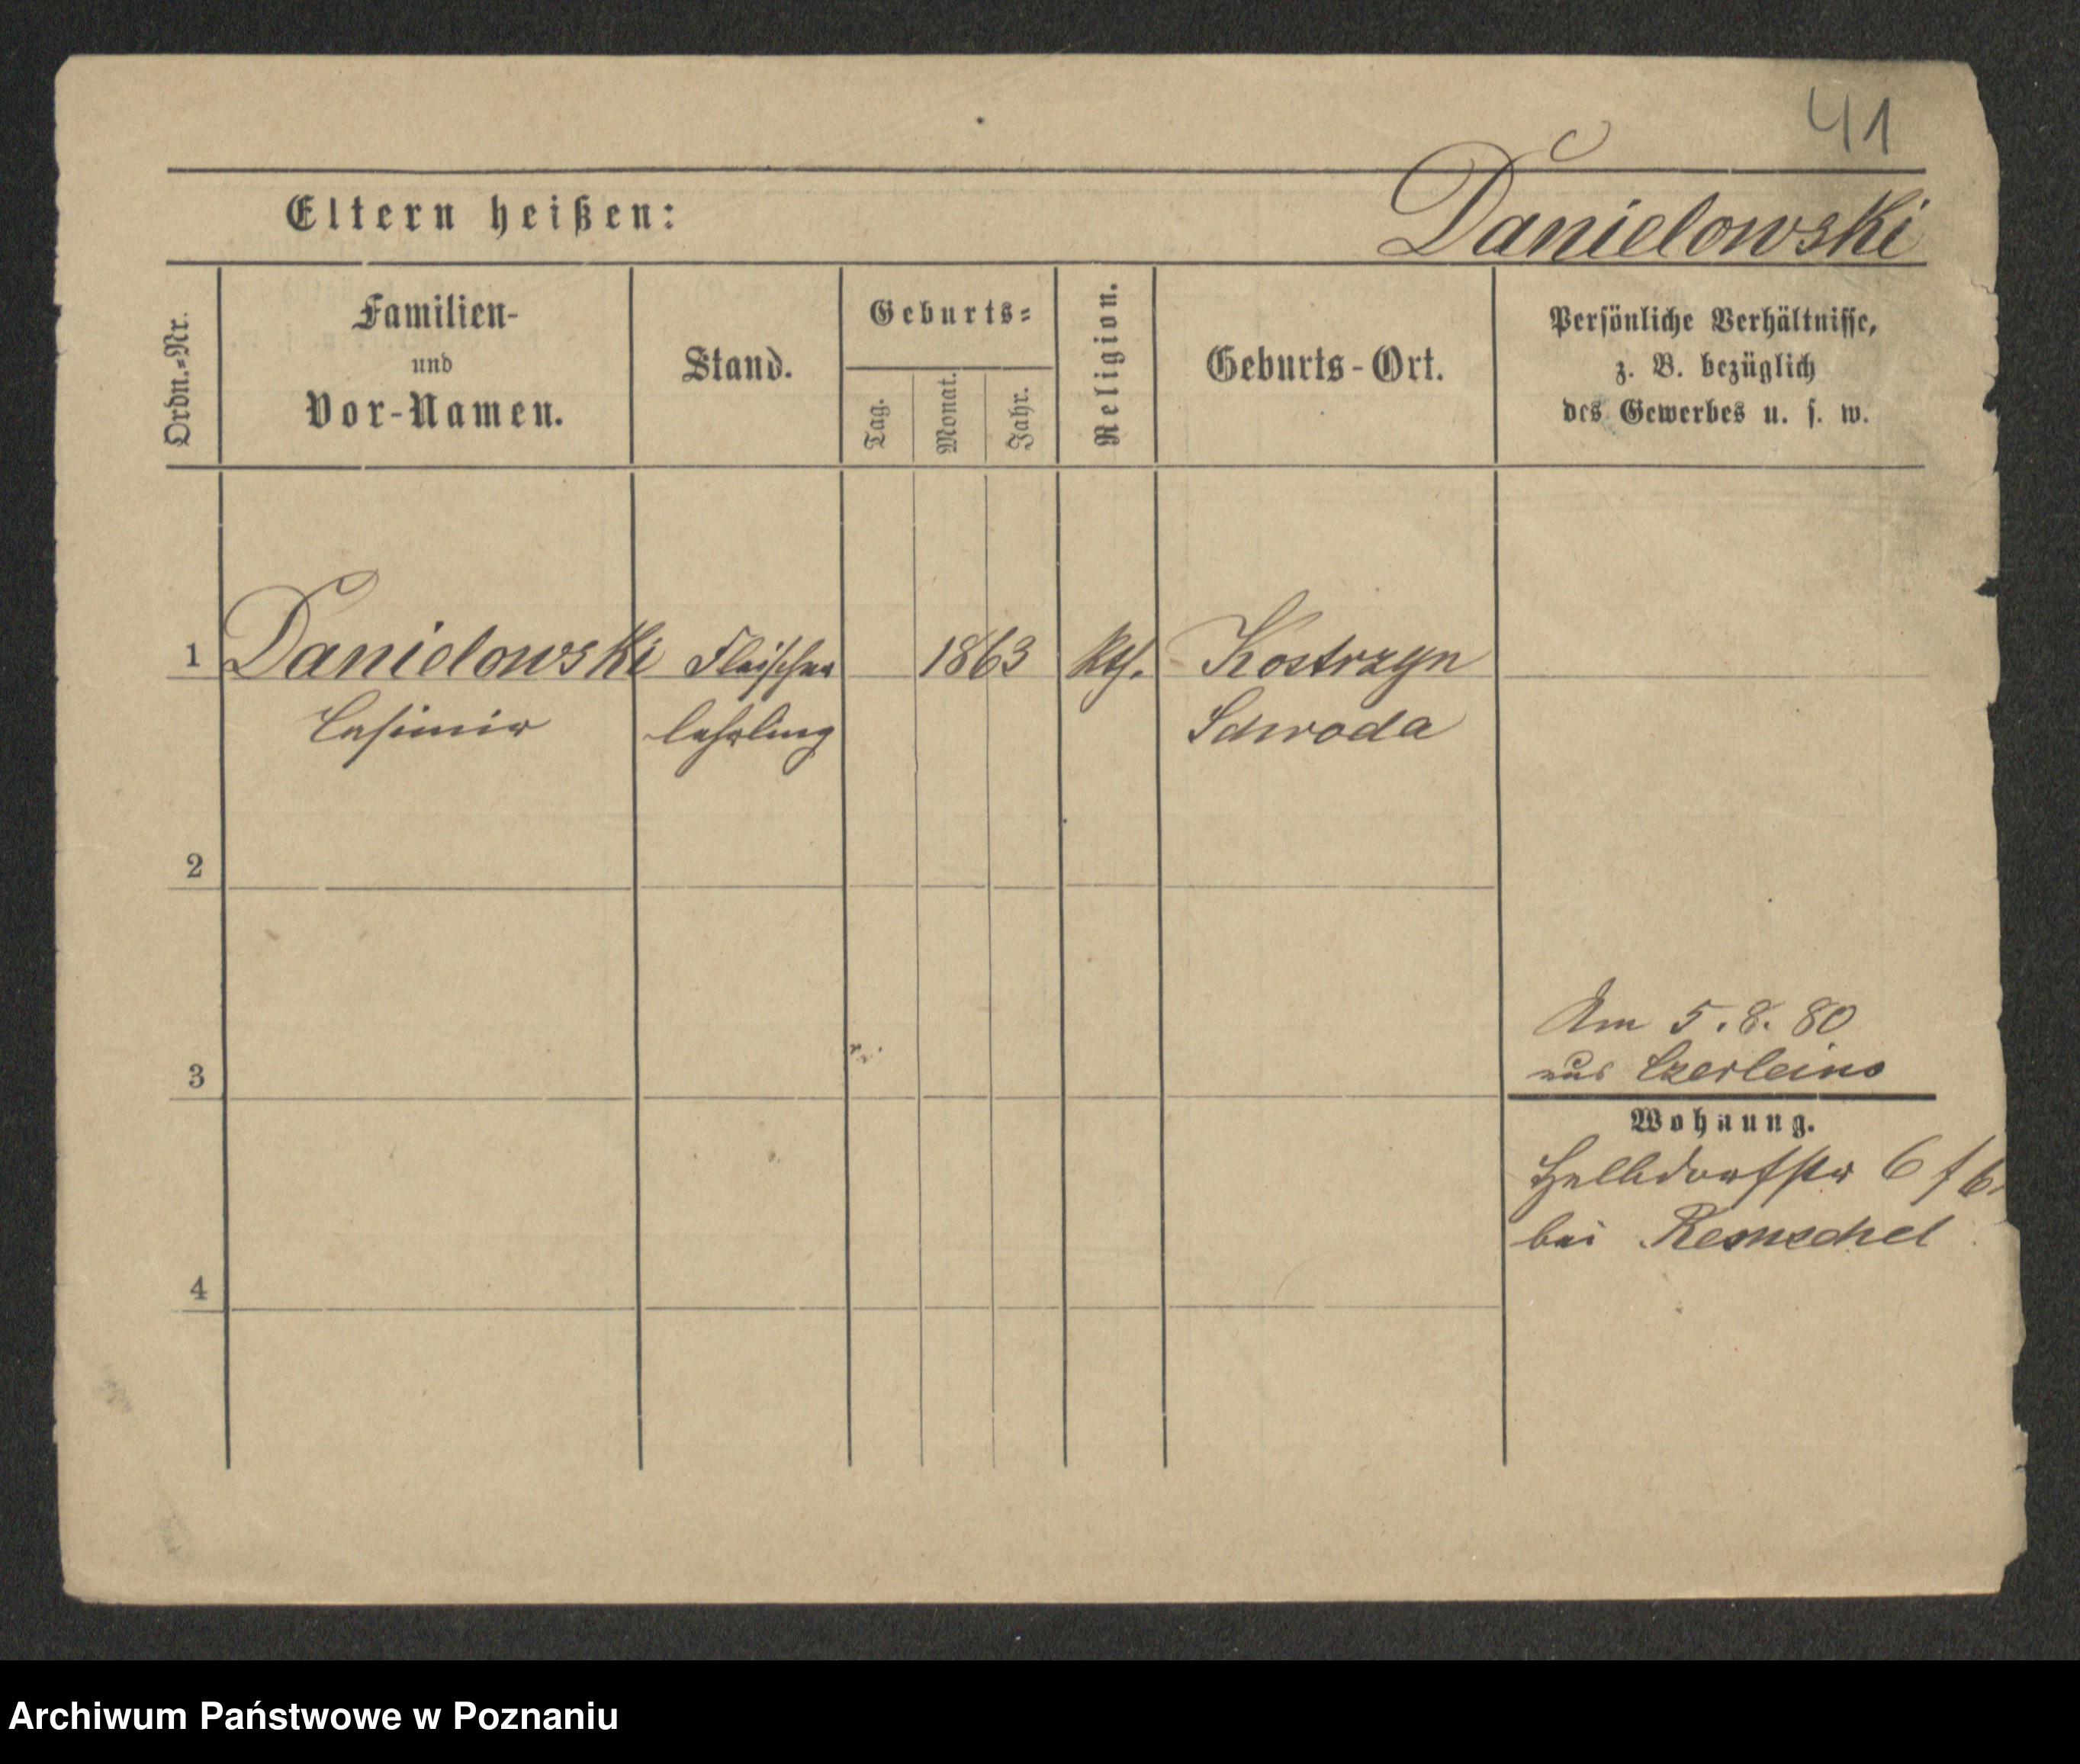 41
Eltern heißen:
Danielowski
Ordn.=Nr.
Familien-
und
Vor-Namen.
Stand.
Geburts=
Tag.
Monat.
Jahr.
Religion.
Geburts-Ort.
Persönliche Verhältnisse,
z. B. bezüglich
des Gewerbes u. s. w.
1 Danielowski Fleischer 1863 kth. Kostrzyn
Casimir lehrling Schroda
2
3
Am 5. 8. 80
aus Czerleino
Wohnung.
Halbdorfstr 6
bei Remschel
4
Archiwum Państwowe w Poznaniu